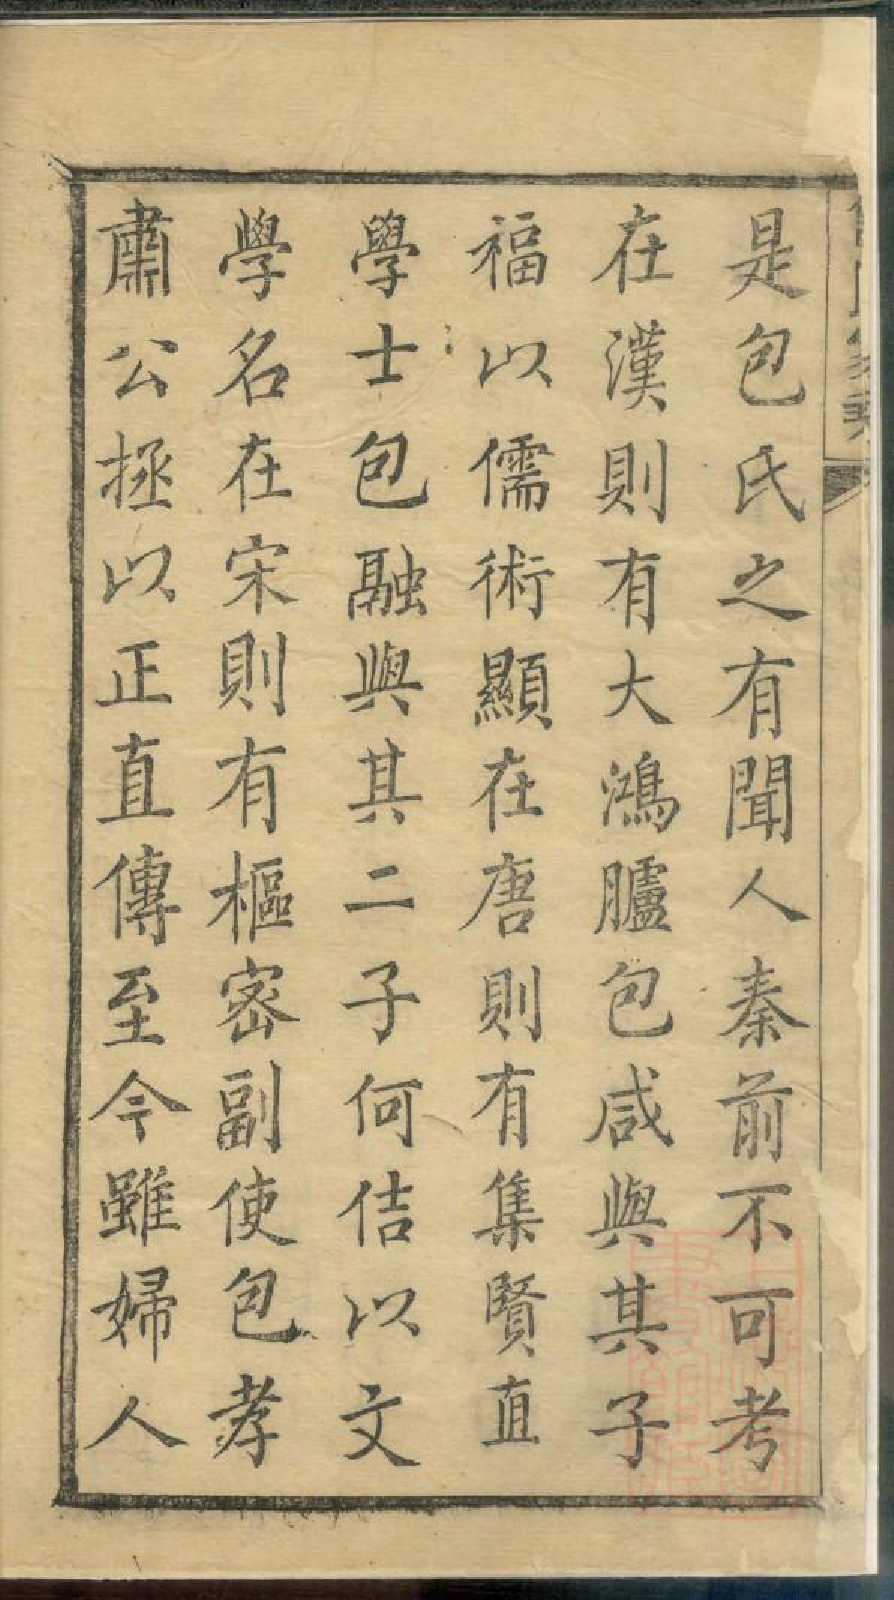 是包氏之有聞人秦前不可考
在漢則有大鴻臚包咸與其子
福以儒術顯在唐則有集賢直
學士包融與其二子何佶以文
學名在宋則有樞密副使包孝
肅公拯以正直傳至今雖婦人